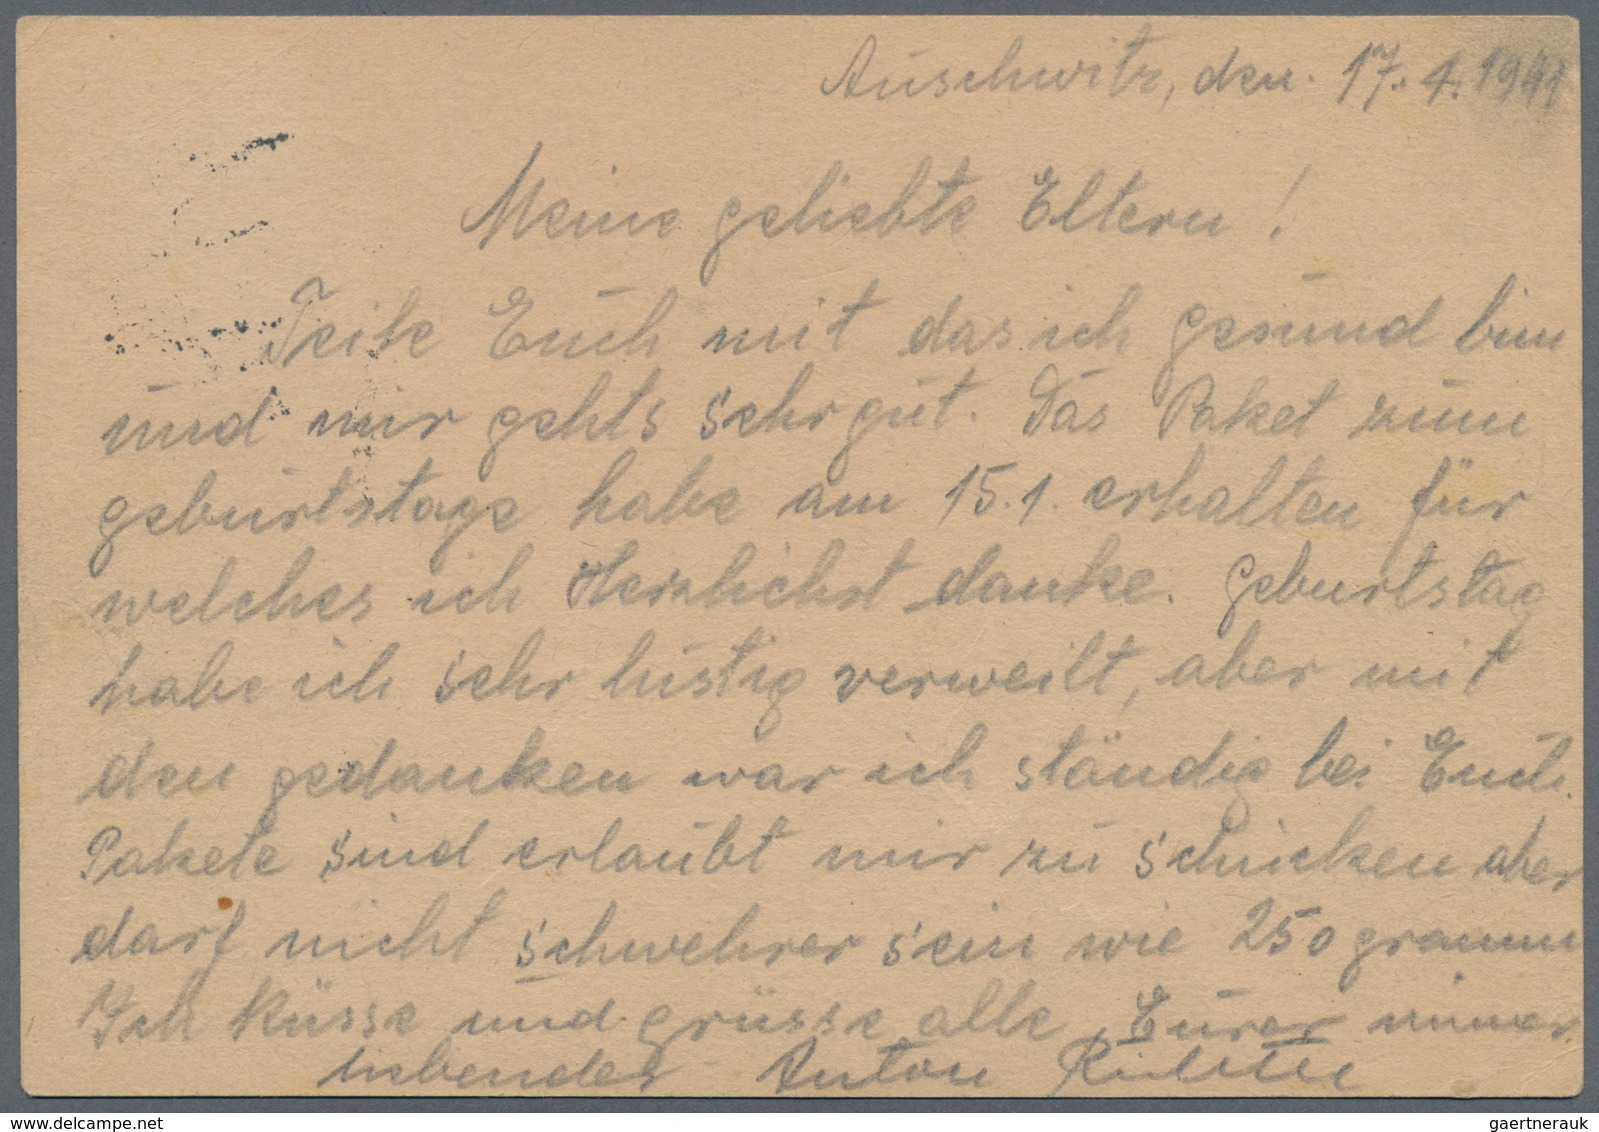 Auschwitz, den. 17. 1. 1941
Meine geliebte Eltern!
Teile Euch mit das ich gesund bin
und mir gehts sehr gut. Das Paket zum
geburtstage habe am 15.1. erhalten für
welches ich Herzlichst danke. Geburtstag
habe ich sehr lustig verweilt, aber mit
den gedanken war ich ständig bei Euch.
Pakete sind erlaubt mir zu schicken aber
darf nicht schwehrer sein wie 250 gramm
Ich küsse und grüsse alle Eurer immer
liebender Anton
gaertnerauk